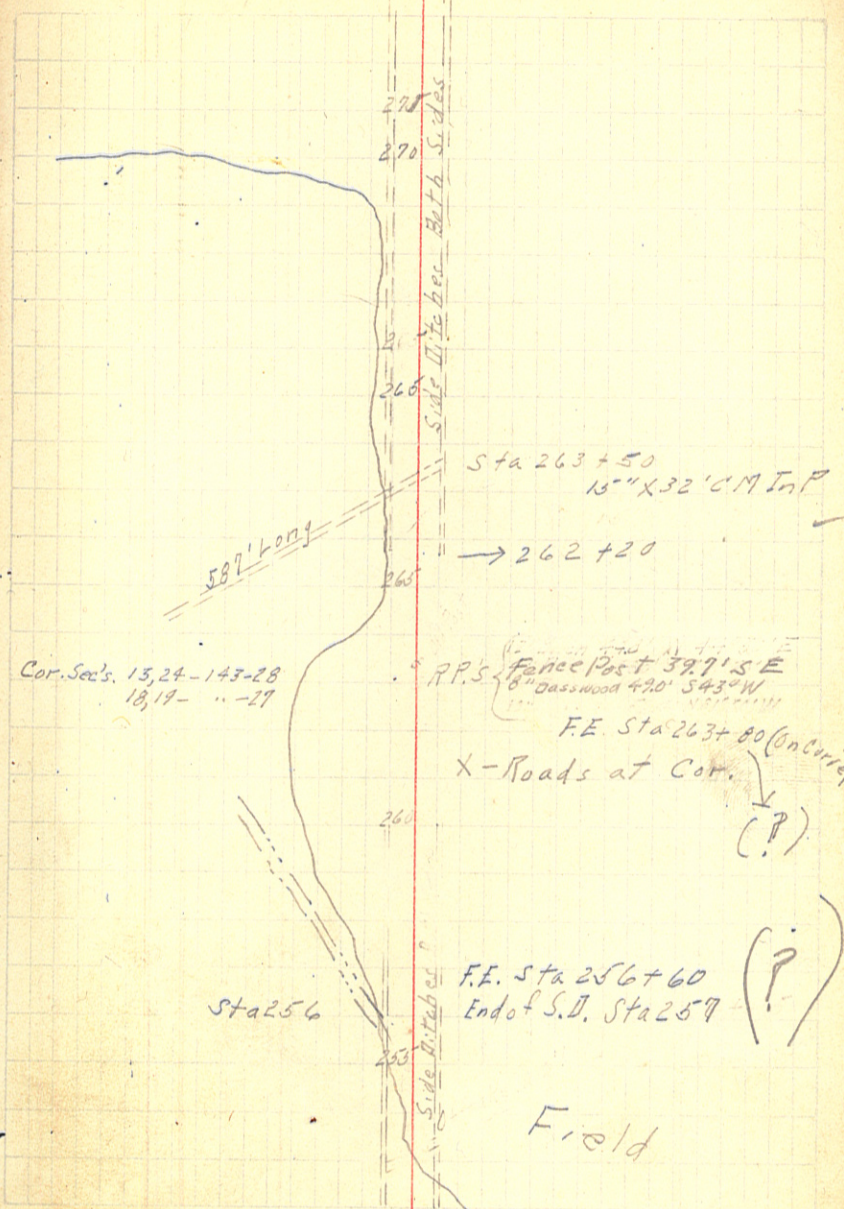 271
270
Side Ditches Both Sides
265
Sta 263 + 50
15" X 32' C M In P
587' Long
→ 262 + 20
265
Cor. Sec's. 13, 24 - 143 - 28
18, 19 - " - 27
R.P.'s { Fence Post 39.7' S E
8" Basswood 49.0' S43°W
F.E. Sta 263 + 80 (On Curve)
X - Roads at Cor.
(?)
260
F.E. Sta 256 + 60
End of S.D. Sta 257
(?)
Sta 256
255
Side Ditches
Field